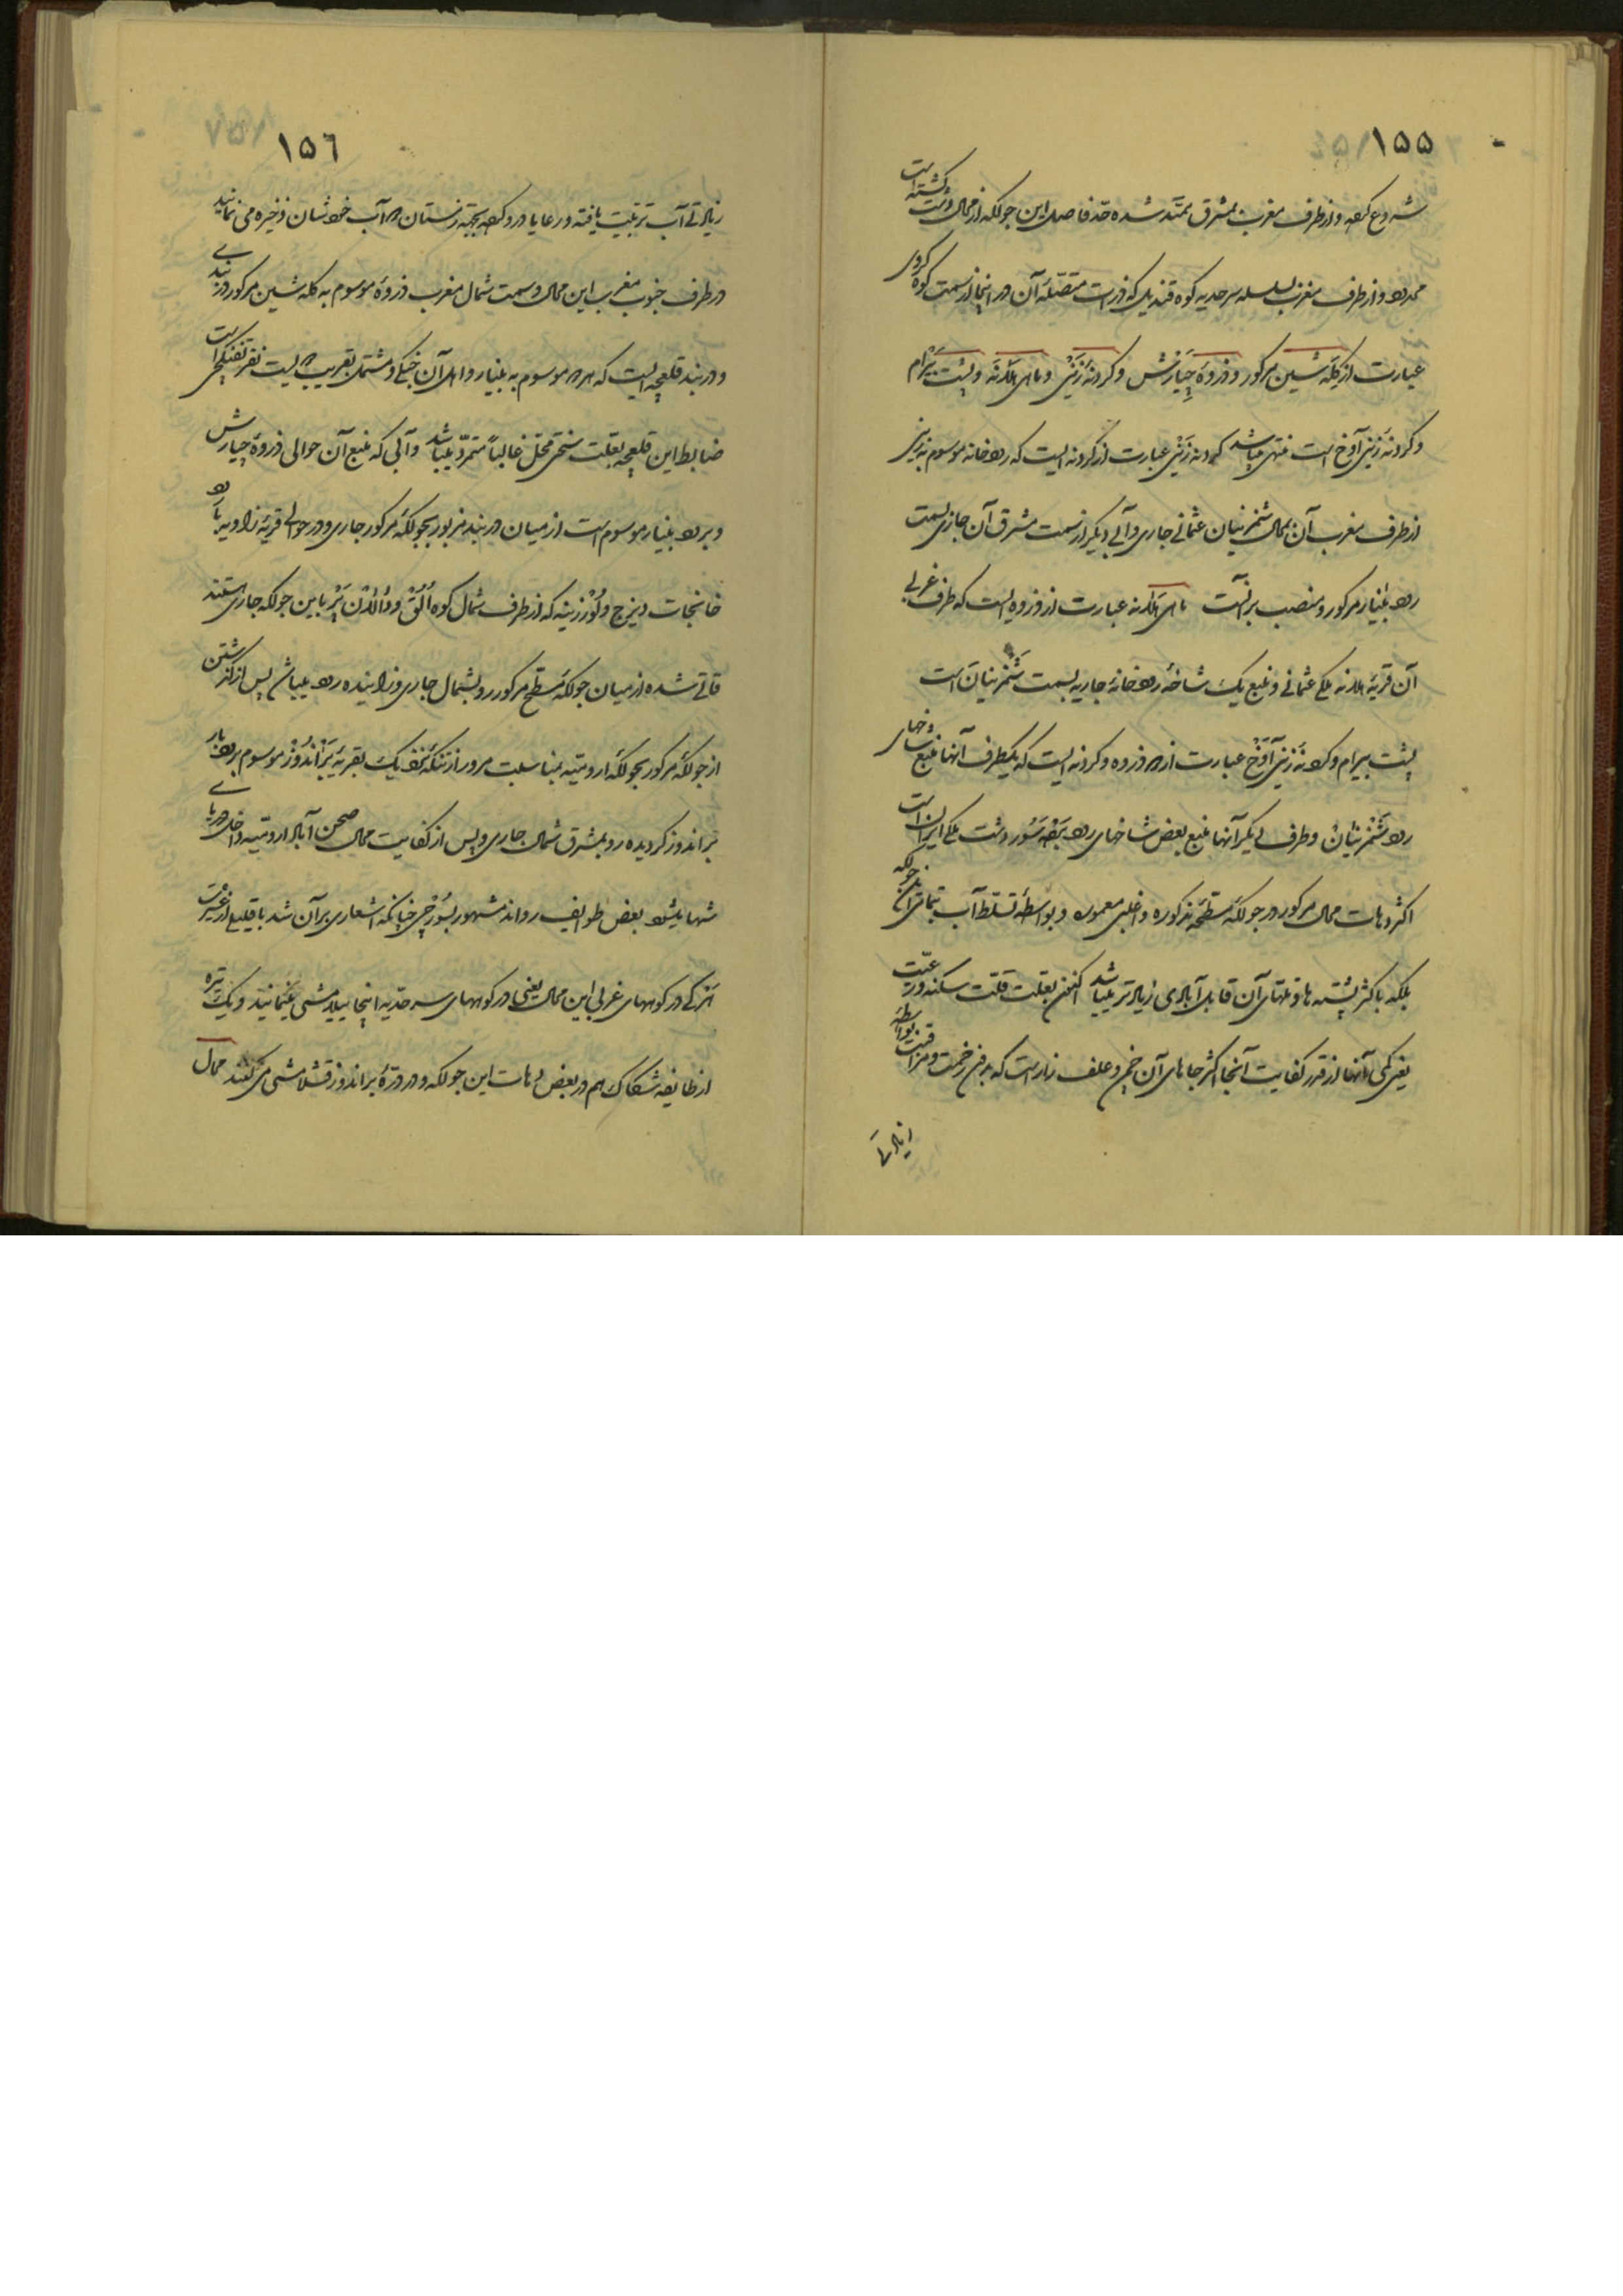 ۱۵۵
شروع کرده و از طرف مغرب بمشرق ممتد شده حد فاصل این جولکه از محال دشت گشته است
محدود و از طرف مغرب بسلسله سرحدیه کوه قندیل که ذروات متصلهٔ آن در اینجا از سمت کوه کروی
عبارت از کله شین مرکور و ذروهٔ چیارش و کردنهٔ زینی و مای هلانه و پشت بیرام
و کردنهٔ زینی آوخ است منتهی میباشد کردنه زینی عبارت از کردنه ایست که رودخانه موسوم به زینی
از طرف مغرب آن بمحال شمزینان عثمانی جاری و آبی دیگر از سمت مشرق آن جاری بسمت
رود بلنیار مرکور و منصب بر آنست مای هلانه عبارت از ذروه ایست که طرف غربی
آن قریهٔ هلانه ملکی عثمانی و منبع یک شاخهٔ رودخانهٔ جاریه بسمت شمزینان است
پشت بیرام و کردنه زینی آوخ عبارت از دو ذروه و کردنه ایست که یکطرف آنها منبع شاخهای
رود شمزینان و طرف دیگر آنها منبع بعض شاخهای رود دشت ملکی ایران است
اکثر دهات محال مرکور در جولکهٔ مسطحهٔ مذکوره و اغلبی معموره و بواسطهٔ تسلط آب بتمامی این جولکه
بلکه باکثر پشته ها و تلهای آن قابل آبادی زیادتر میباشد لکن بعلت قلت سکنه و رعیت
یعنی کمی آنها از قدر کفایت آنجا اکثر جاهای آن چمن و علف زار است که بدون زحمت و مرافقت بواسطه
زیادتی
۱۵٦
زیادتی آب تربیت یافته و رعایا درو کرده بجهة زمستان دواب خودشان ذخیره می نمایند
در طرف جنوب مغرب این محال و سمت شمال مغرب ذروهٔ موسوم به کله شین مرکور دربندی
و در بند قلعچه ایست که هر دو موسوم به بلنیار و اهل آن جنکی و مشتمل بتقریب دویست نفر تفنگچی است
ضابط این قلعچه بعلت سختی محل غالباً متمرد میباشد و آبی که منبع آن حوالی ذروهٔ چیارش
و برود بلنیار موسوم است از میان دربند مزبور بجولکهٔ مرکور جاری و در حوالی قریهٔ زاویه با رود
خانجات دیزج و لورزینه که از طرف شمال کوه الق و دالان پر باین جولکه جاری هستند
قاتی شده از میان جولکهٔ مسطح مرکور رو بشمال جاری و زاینده رود میباشد پس از گذشتن
از جولکهٔ مرکور بجولکهٔ ارومیه بمناسبت مرور از تنکهٔ نزدیک بقریهٔ براندوز موسوم برودبار
براندوز کردیده رو بمشرق شمال جاری و پس از کفایت محال صحن آباد ارومیه داخل دریای
شها میشود بعض طوایف رواند مشهور بسورچی چنانکه اشعاری بر آن شد با قلیلی از عشیرت
هرکی در کوههای غربی این محال یعنی در کوههای سرحدیه اینجا ییلامشی مینمایند و یک تیره
از طایفه شکاک هم در بعض دهات این جولکه و در درهٔ براندوز قشلامشی میکنند محال